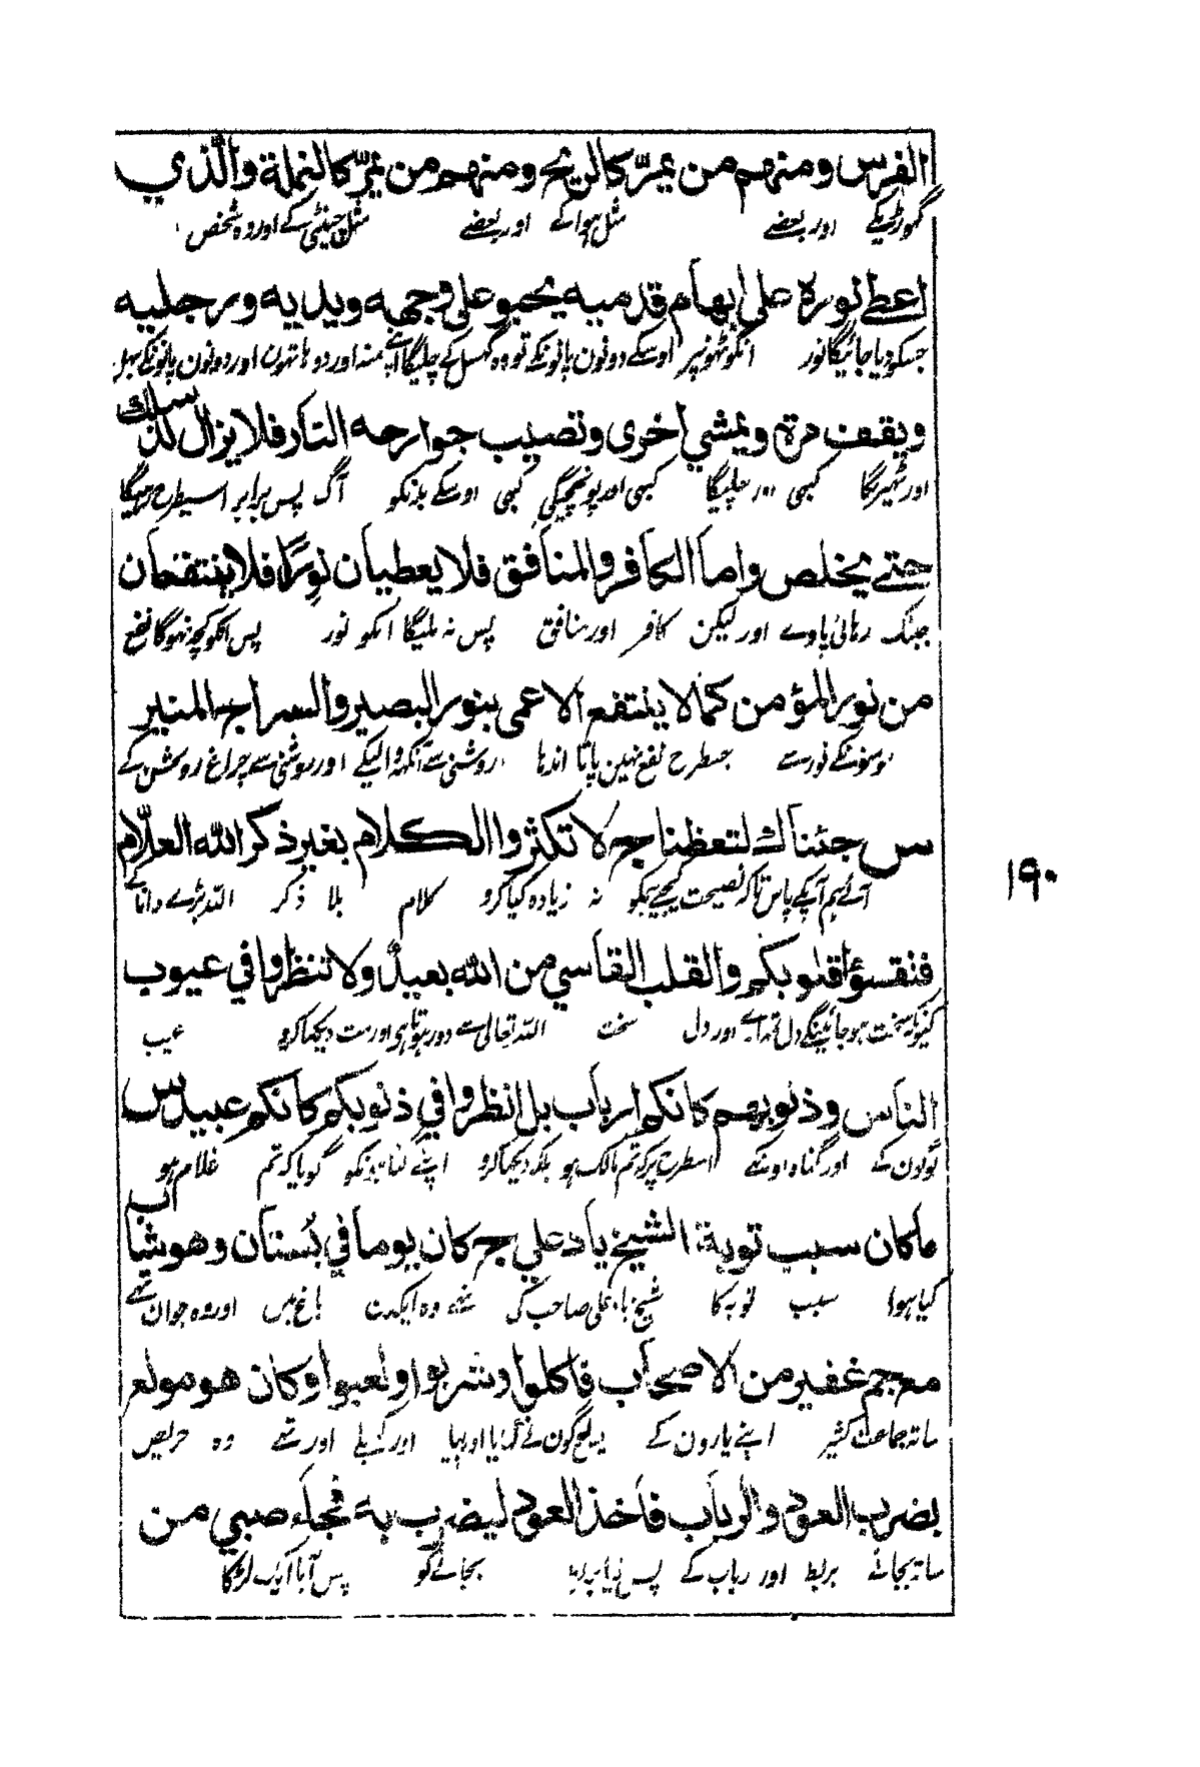 الفرس ومنهم من يمرّ كالريح ومنهم من يمرّ كالنملة والّذي
گھوڑیکے اور بعضے مثل ہوا کے اور بعضے مثل چینٹی کے اور وہ شخص
اعطے نوره على ابهام قدميه يحبو على وجهه ويديه ورجليه
جسکو دیا جائیگا نور انگوٹھونپر اوسکے دونون پانونکے تو وہ گھسل کے چلیگا اپنے منہ اور دو ہاتھون اور دونون پانونکے بہل
ويقف مرة ويمشي اخرى وتصيب جوارحه النار فلا يزال كذلك
اور ٹہیریگا کبھی اور چلیگا کبھی اور پونچیگی کبھی اوسکے بدنکو آگ پس برابر اسیطرح رہیگا
حتے يخلص واما الكافر والمنافق فلا يعطيان نورًا فلا ينتفعان
جبتک رہائی پاوے اور لیکن کافر اور منافق پس نہ ملیگا انکو نور پس انکو کچھ نہوگا نفع
من نور المؤمن كما لا ينتفع الاعمى بنور البصير والسراج المنير
مومنکے نورسے جسطرح نفع نہین پاتا اندہا روشنی سے آنکہہ والیکے اور روشنی سے چراغ روشن کے
س جئناك لتعظنا ج لا تكثروا الكلام بغير ذكر الله العلّام
آئے ہم آپکے پاس تاکہ نصیحت کیجیے ہمکو نہ زیادہ کیا کرو کلام بلا ذکر اللہ بڑے دانا کے
١٩٠
فتقسؤا قلوبكم والقلب القاسي من الله بعيدٌ ولا تنظروا في عيوب
کیونکہ سخت ہو جائینگے دل تمہارے اور دل سخت اللہ تعالی سے دور ہوتا ہی اور مت دیکہا کرو عیب
الناس وذنوبهم كانكم ارباب بل انظروا في ذنوبكم كانكم عبيد س
لوگون کے اور گناہ اونکے اسطرح پر کہ تم مالک ہو بلکہ دیکہا کرو اپنے گناہونکو گویا کہ تم غلام ہو
ما كان سبب توبة الشيخ ياد علي ج كان يوما في بُستان وهو شاب
کیا ہوا سبب توبہ کا شیخ یاد علی صاحب کی تہے وہ ایکدن باغ مین اور وہ جوان تہے
مع جم غفير من الاصحاب فاكلوا وشربوا ولعبوا وكان هو مولع
ساتہ جماعت کثیر اپنے یارون کے پس لوگون نے کہایا اور پیا اور کہیلے اور تہے وہ حریص
بضرب العود والرباب فاخذ العود ليضرب به فجاء صبي من
ساتہ بجانے بربط اور رباب کے پس لیا بربط بجانے کو پس آیا ایک لڑکا